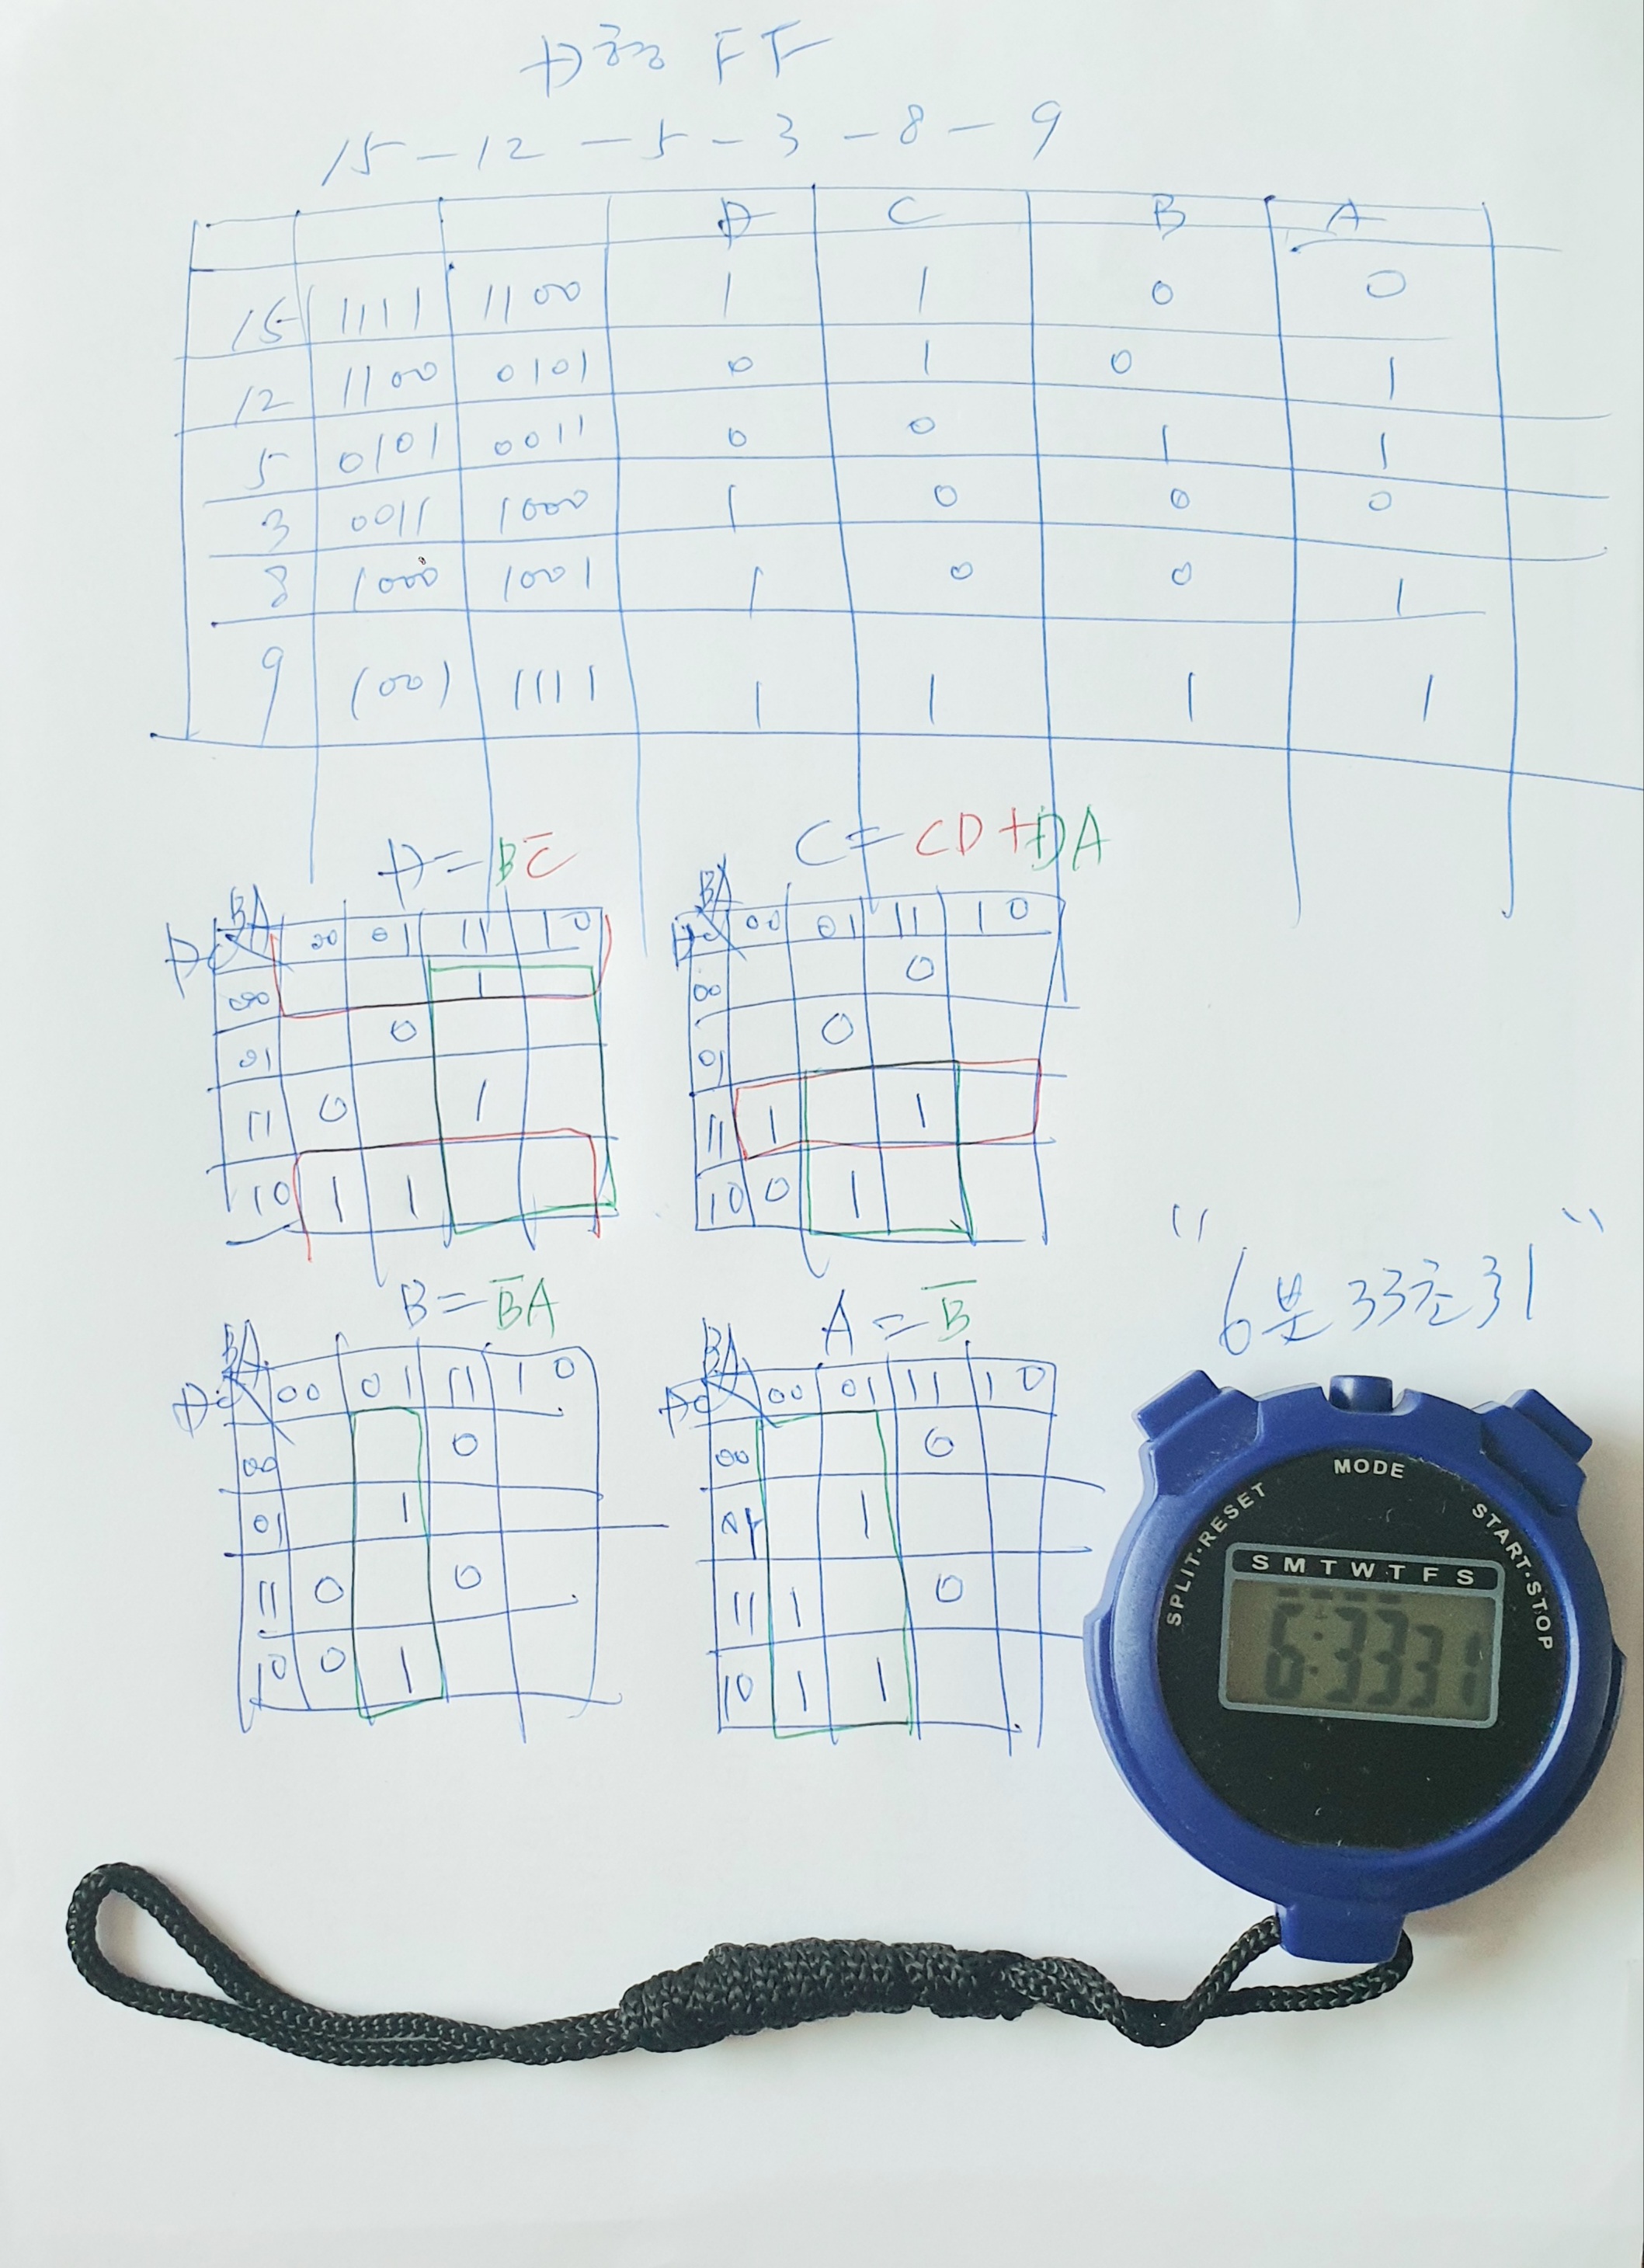 D형 FF
15 - 12 - 5 - 3 - 8 - 9
D C B A
15 1111 1100 1 1 0 0
12 1100 0101 0 1 0 1
5 0101 0011 0 0 1 1
3 0011 1000 1 0 0 0
8 1000 1001 1 0 0 1
9 1001 1111 1 1 1 1
D = BC̅
BA
DC 00 01 11 10
00 1
01 0
11 0 1
10 1 1
C = CD + DA
BA
DC 00 01 11 10
00 0
01 0
11 1 1
10 0 1
B = B̅A
BA
DC 00 01 11 10
00 0
01 1
11 0 0
10 0 1
A = B̅
BA
DC 00 01 11 10
00 0
01 1
11 1 0
10 1 1
"6분 33초 31"
MODE
SPLIT·RESET
START·STOP
S M T W T F S
6:3331